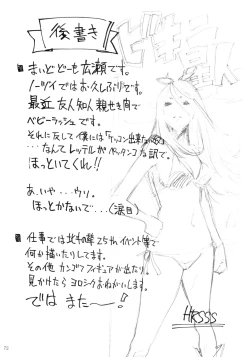 後書き
まいどどーも広瀬です。
ノーツイではお久しぶりです。
最近 友人知人 親せき間で
ベビーラッシュです。
それに反して僕には
・・・なんてレッテルがペッタンコな訳で。
ほっといてくれ!!
あ、いや・・・ウソ。
ほっとかないで・・・(涙目)
仕事では北斗の拳25thイベント等で
何か描いたりしてます。
その他 カンゴフィギュアが出たり。
見かけたらヨロシクおねがいします。
では また〜!
HIRSSS